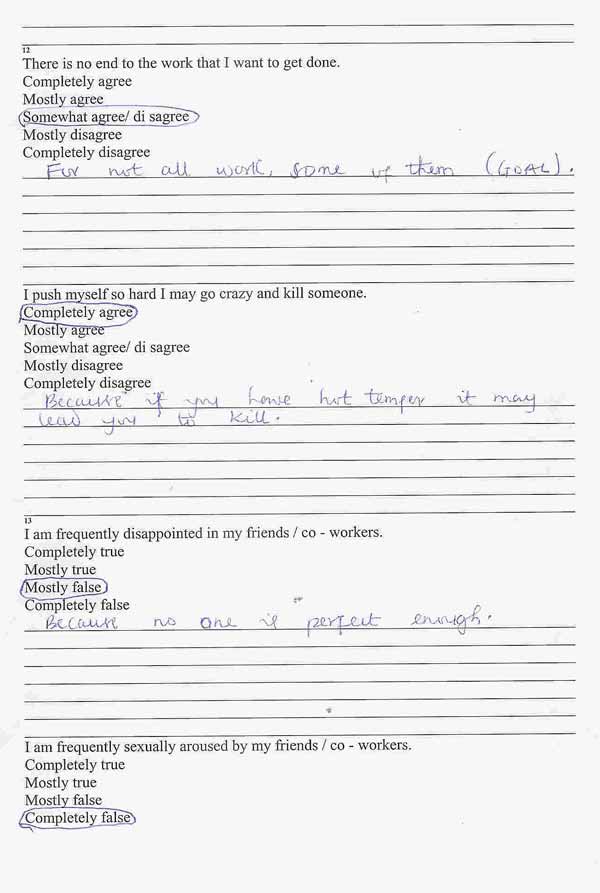 12
There is no end to the work that I want to get done.
Completely agree
Mostly agree
Somewhat agree/ di sagree
Mostly disagree
Completely disagree
For not all work, some of them (GOAL).
I push myself so hard I may go crazy and kill someone.
Completely agree
Mostly agree
Somewhat agree/ di sagree
Mostly disagree
Completely disagree
Because if you have hot temper it may
lead you to kill.
13
I am frequently disappointed in my friends / co - workers.
Completely true
Mostly true
Mostly false
Completely false
Because no one is perfect enough.
I am frequently sexually aroused by my friends / co - workers.
Completely true
Mostly true
Mostly false
Completely false